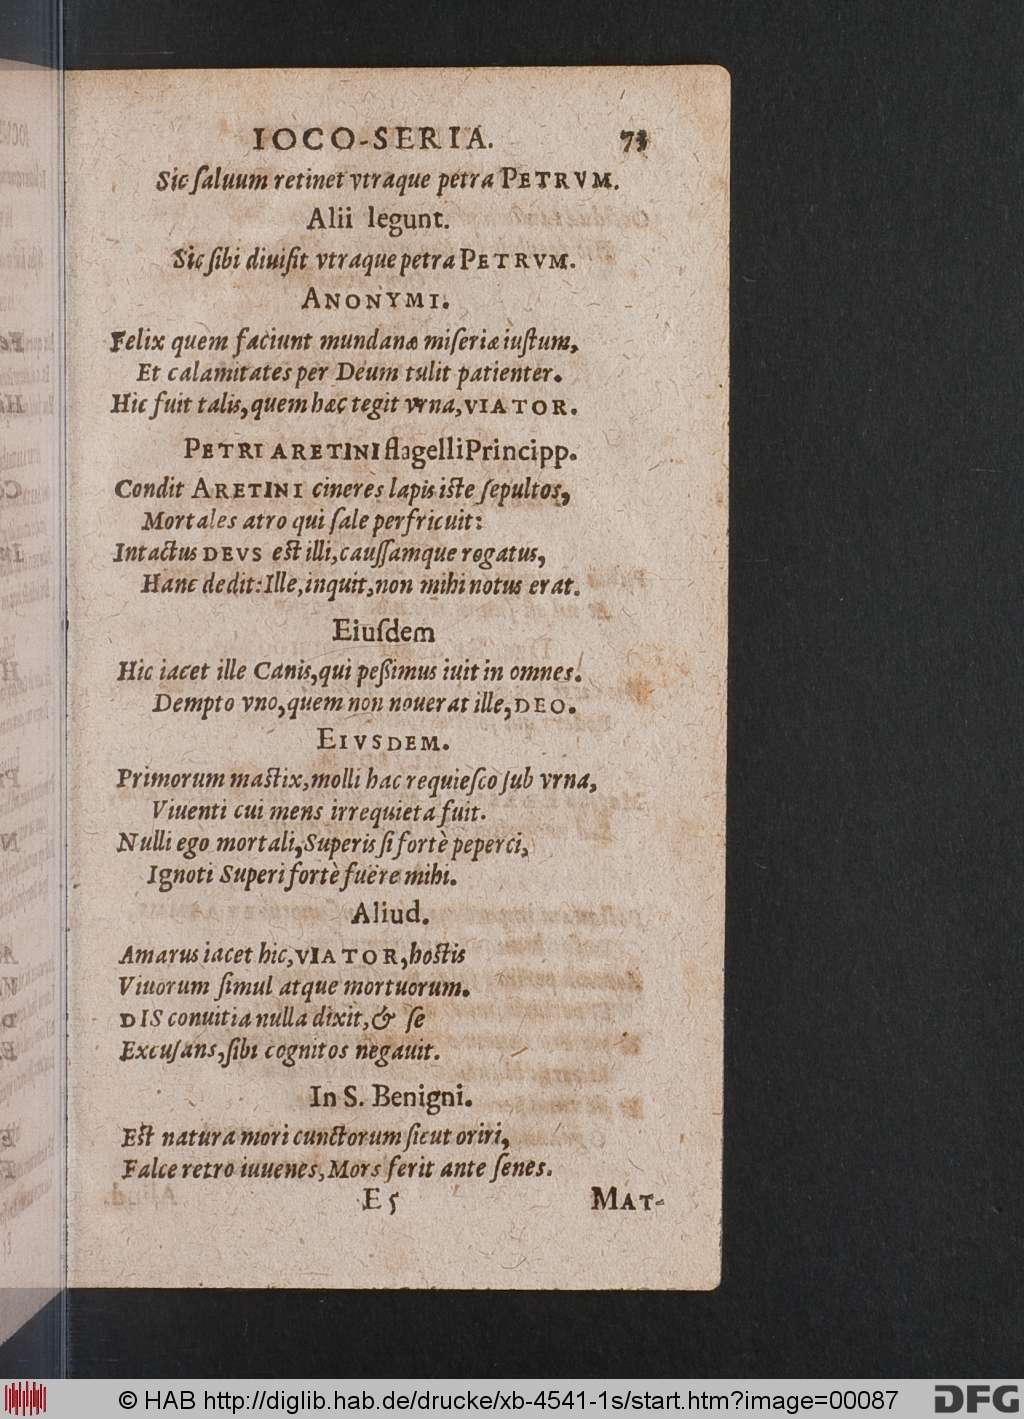 IOCO-SERIA. 73
Sic ſaluum retinet vtraque petra PETRVM.
Alii legunt.
Sic ſibi diuiſit vtraque petra PETRVM.
ANONYMI.
Felix quem faciunt mundanæ miſeriæ iuſtum,
Et calamitates per Deum tulit patienter.
Hic fuit talis, quem hæc tegit vrna, VIATOR.
PETRI ARETINI flagelli Principp.
Condit ARETINI cineres lapis iſte ſepultos,
Mortales atro qui ſale perfricuit:
Intactus DEVS eſt illi, cauſſamque rogatus,
Hanc dedit: Ille, inquit, non mihi notus erat.
Eiuſdem
Hic iacet ille Canis, qui peſſimus iuit in omnes.
Dempto vno, quem non nouerat ille, DEO.
EIVSDEM.
Primorum maſtix, molli hac requieſco ſub vrna,
Viuenti cui mens irrequieta fuit.
Nulli ego mortali, Superis ſi fortè peperci,
Ignoti Superi fortè fuëre mihi.
Aliud.
Amarus iacet hic, VIATOR, hoſtis
Viuorum ſimul atque mortuorum.
DIS conuitia nulla dixit, & ſe
Excuſans, ſibi cognitos negauit.
In S. Benigni.
Eſt natura mori cunctorum ſicut oriri,
Falce retro iuuenes, Mors ferit ante ſenes.
E 5 MAT-
© HAB http://diglib.hab.de/drucke/xb-4541-1s/start.htm?image=00087
DFG